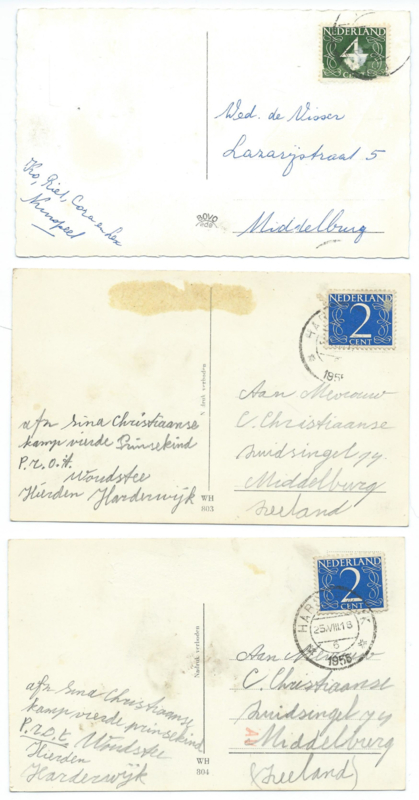 NEDERLAND
4
CENT
Wed. de Visser
Lazarijstraat 5
Middelburg
Ko, Riet, Cora en
Nunspeet
BOVO
NEDERLAND
2
CENT
HAR
1955
Aan Mevrouw
C. Christiaanse
Zuidsingel 74
Middelburg
Zeeland
afz Sina Christiaanse
kamp vierde Prinsekind
P.r.o.t.
Woudstee
Hierden Harderwijk
Nadruk verboden
WH
803
NEDERLAND
2
CENT
HARDERWIJK
25.VIII.18
1955
Aan Mevrouw
C. Christiaanse
Zuidsingel 74
Middelburg
(Zeeland)
afz Sina Christiaanse
kamp vierde prinsekind
P.r.o.t. Woudstee
Hierden
Harderwijk
Nadruk verboden
WH
804